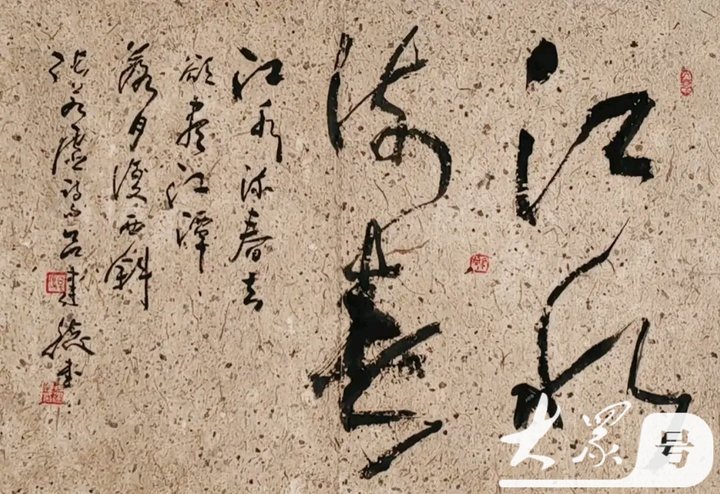 江水
流春
江水流春去
欲盡江潭
落月復西斜
张若虚诗吕建德书
大眾号